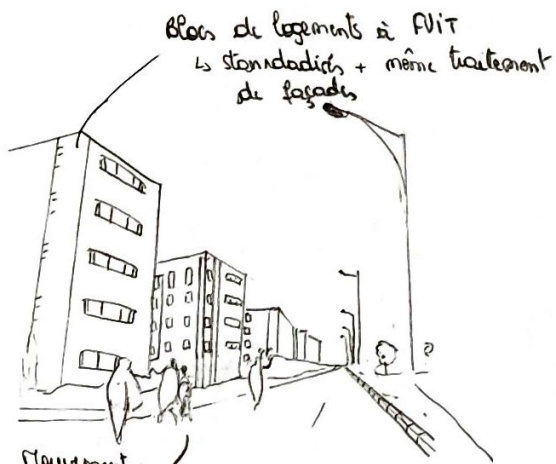 Blocs de logements à FVIT
↳ standadisés + même traitement
de façades
Mouvement